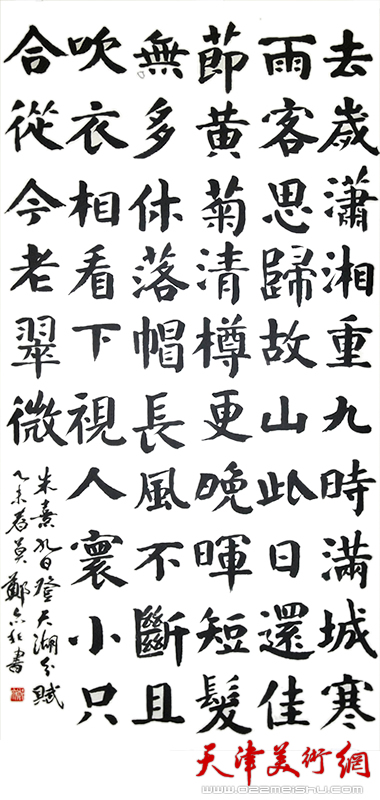 去歲瀟湘重九時滿城寒
雨客思歸故山此日還佳
節黃菊清樽更晚暉短髮
無多休落帽長風不斷且
吹衣相看下視人寰小只
合從今老翠微
朱熹九日登天湖分賦
乙未鄭書
天津美術網
www.022meishu.com